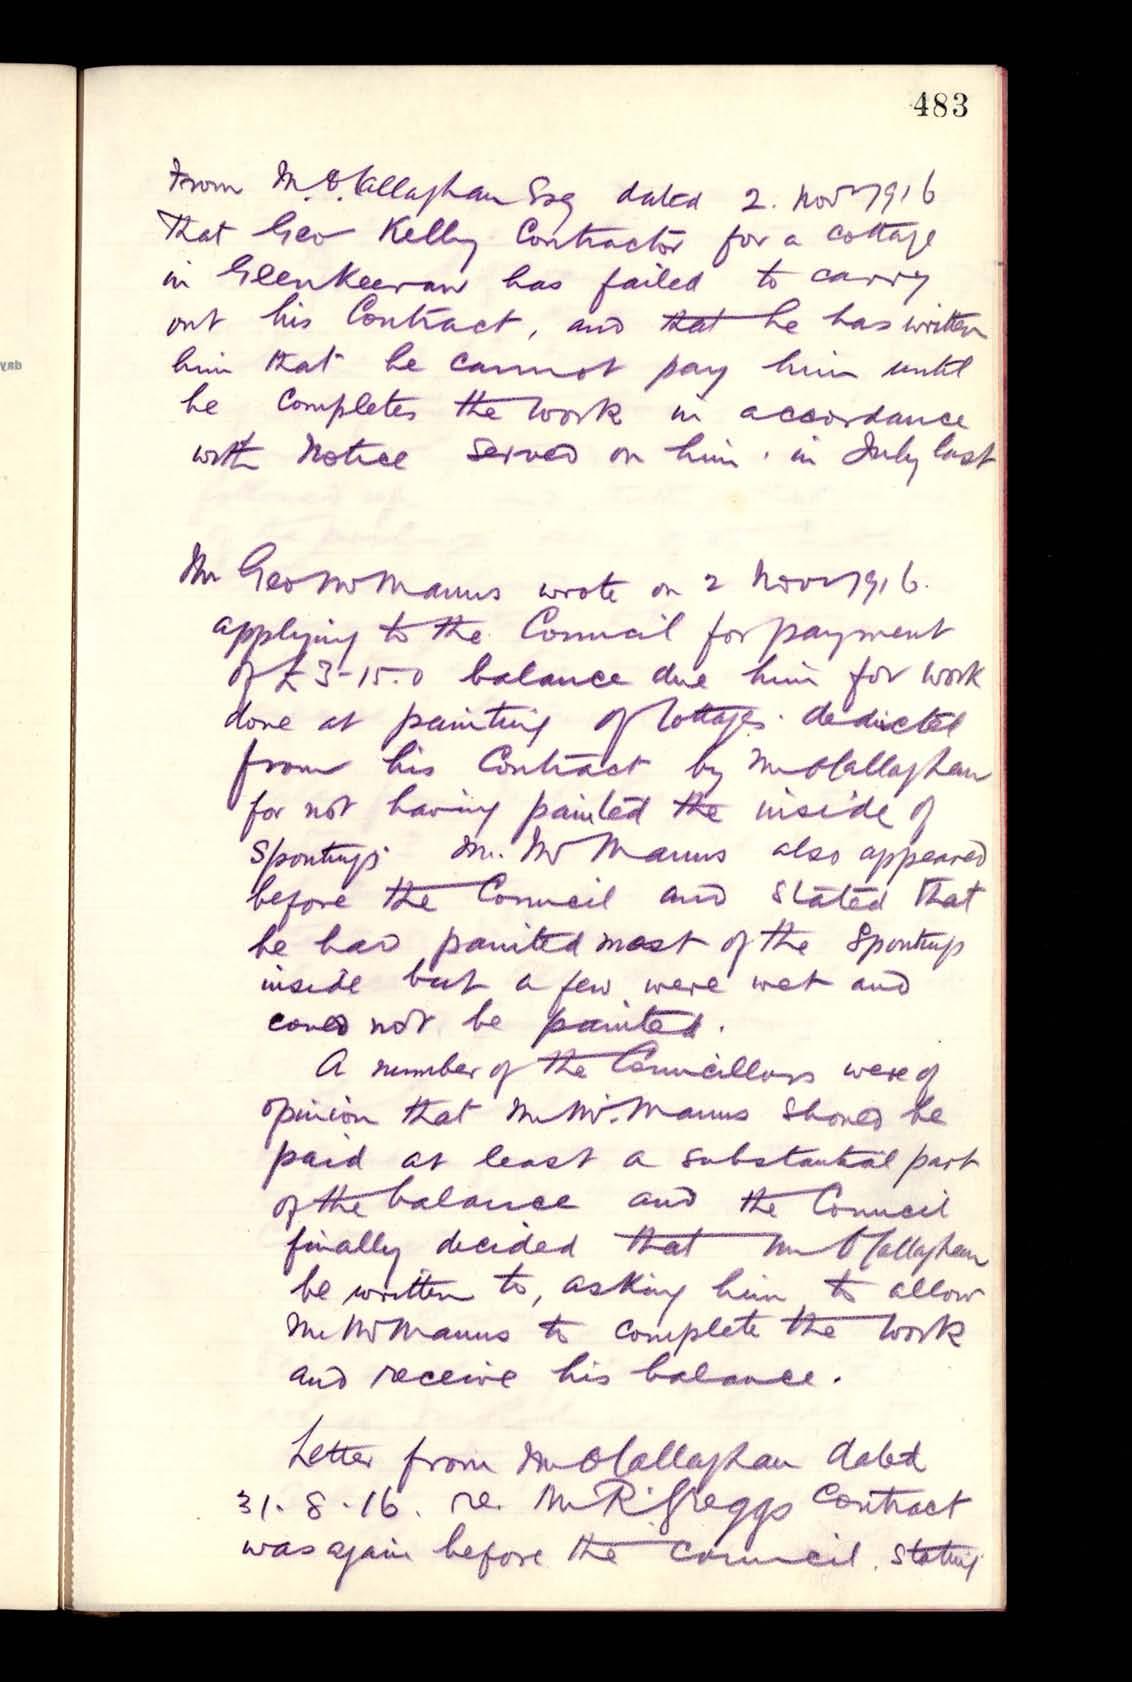 483
From M. O'Callaghan Esq dated 2. Novr 1916
That Geo Kelly Contractor for a cottage
in Glenkeeran has failed to carry
out his Contract, and that he has written
him that he cannot pay him until
he completes the work in accordance
with Notice served on him. in July last
Mr Geo McManus wrote on 2 Novr 1916.
applying to the Council for payment
of £3-15.0 balance due him for work
done at painting of Cottages. deducted
from his Contract by Mr O'Callaghan
for not having painted the inside of
Spoutings. Mr. McManus also appeared
before the Council and stated that
he had painted most of the Spoutings
inside but a few were wet and
could not be painted.
A number of the Councillors were of
opinion that Mr McManus should be
paid at least a substantial part
of the balance and the Council
finally decided that Mr O'Callaghan
be written to, asking him to allow
Mr McManus to complete the work
and receive his balance.
Letter from Mr O'Callaghan dated
31.8.16. re. Mr R. Greggs Contract
was again before the council. stating
day